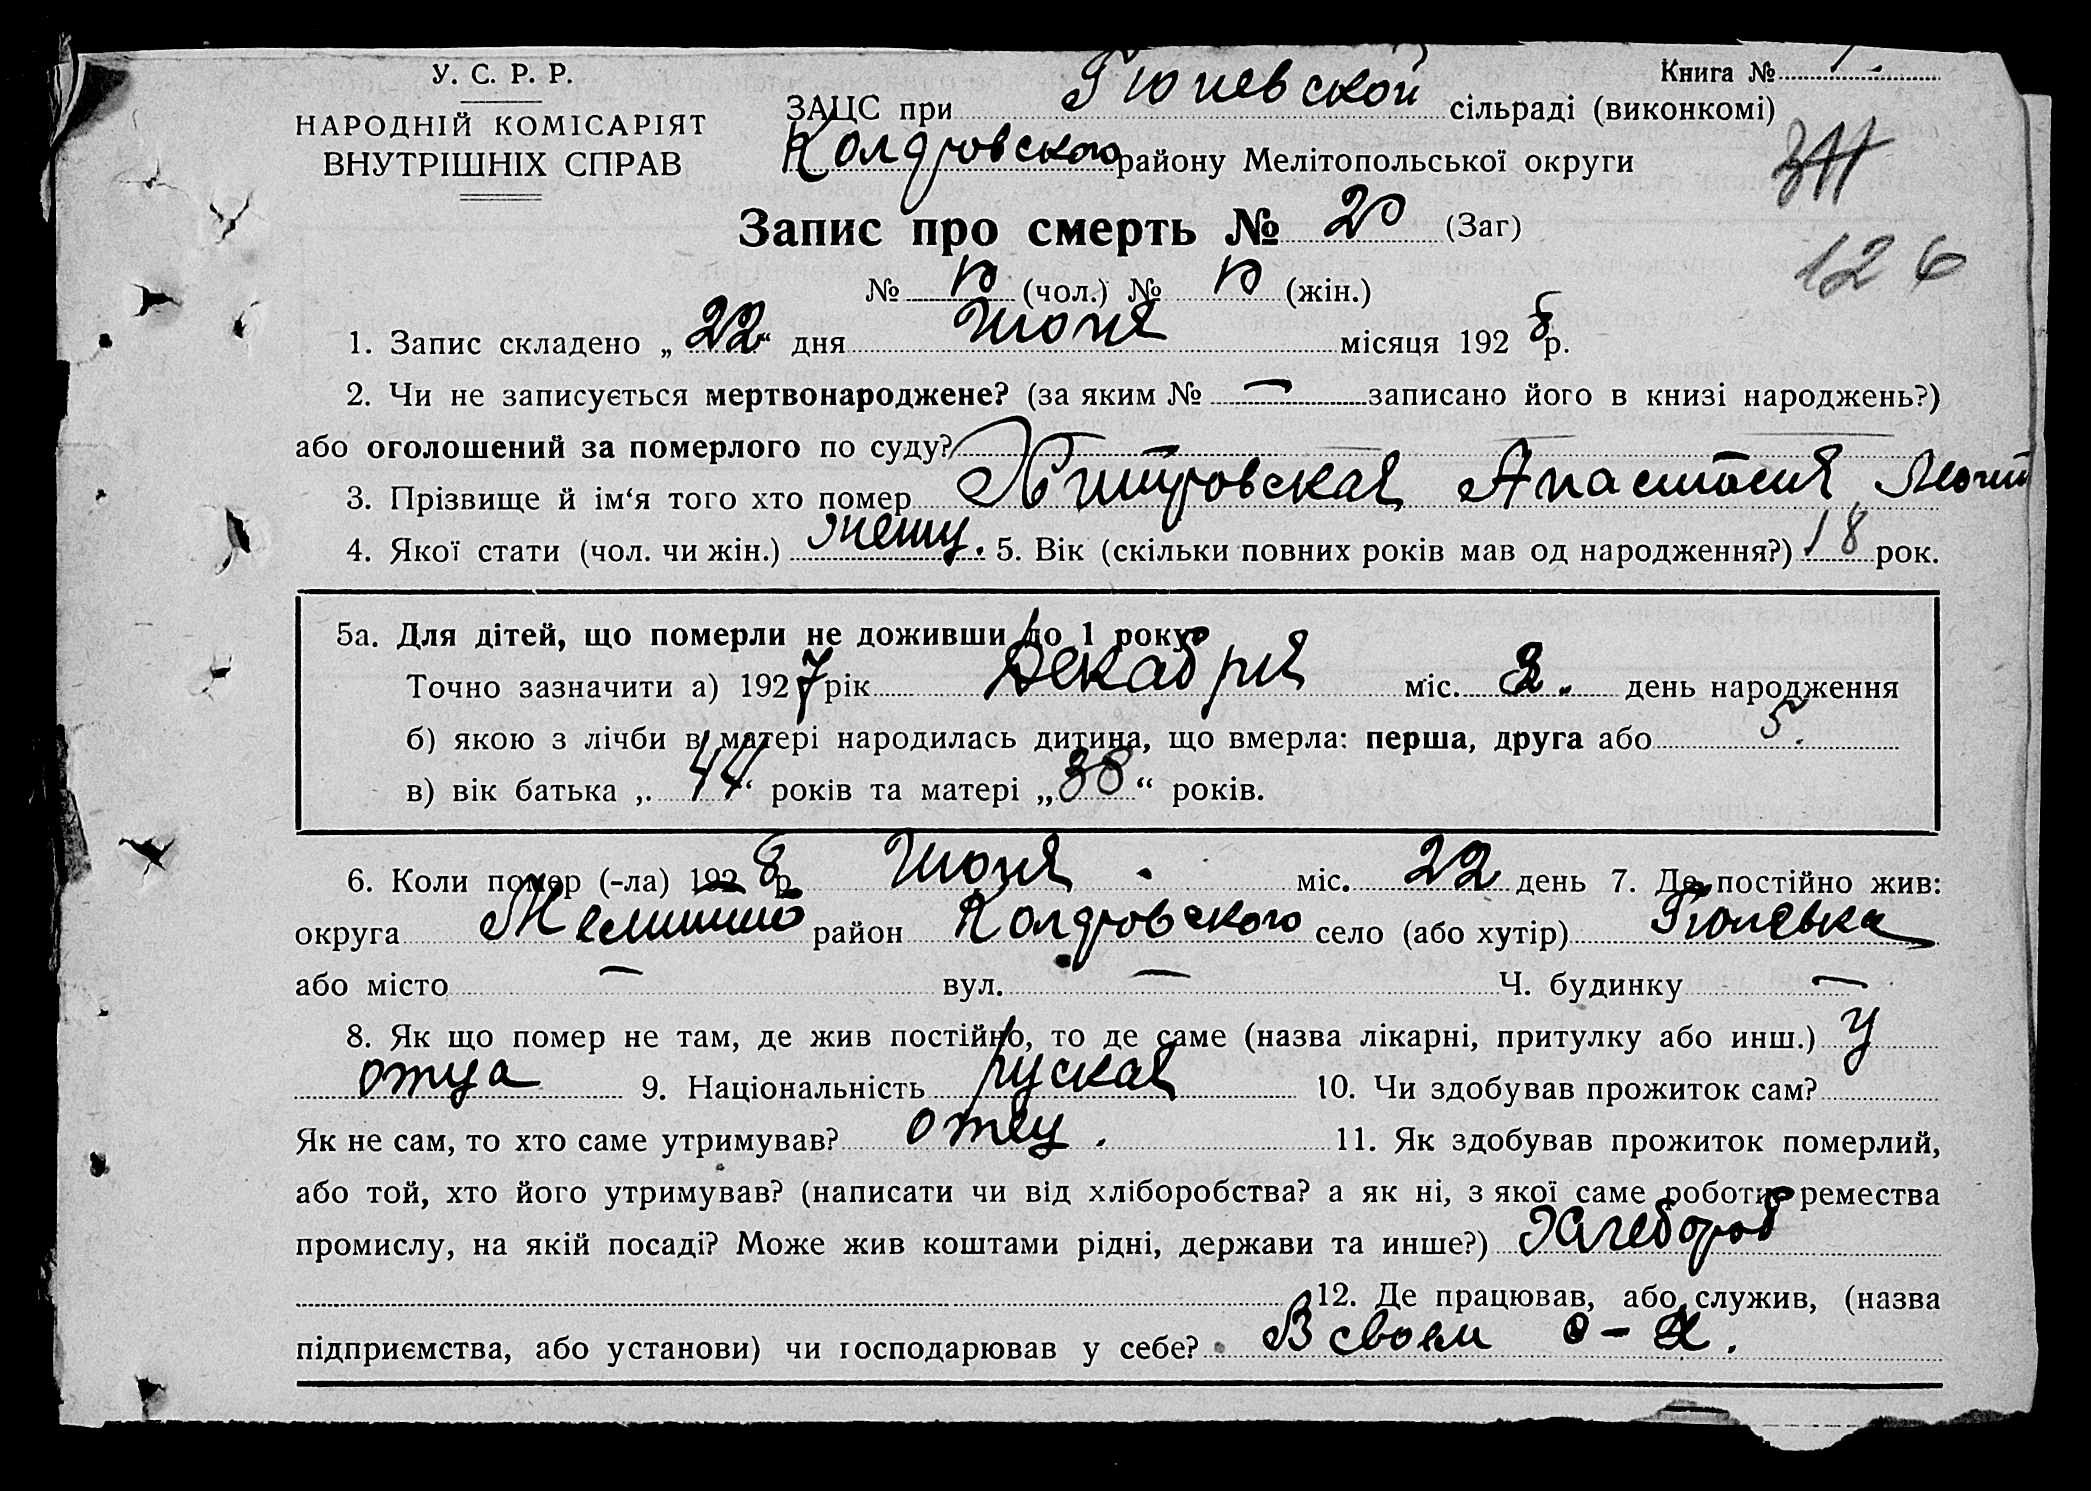 У. С. Р. Р.
НАРОДНІЙ КОМІСАРІЯТ
ВНУТРІШНІХ СПРАВ
Книга №
ЗАЦС при Гюневской сільраді (виконкомі)
району Мелітопольської округи
Запис про смерть № 20 (Заг)
№ 10 (чол.) № 10 (жін.)
126
1. Запис складено „ 22 “ дня Июня місяця 192 8 р.
2. Чи не записується мертвонароджене? (за яким № — записано його в книзі народжень?)
або оголошений за померлого по суду?
3. Прізвище й ім‘я того хто помер Хитровская Анастасия
4. Якої стати (чол. чи жін.) 5. Вік (скільки повних років мав од народження?) 18 рок.
5а. Для дітей, що померли не доживши до 1 року:
Точно зазначити а) 1927 рік Декабря міс. день народження
б) якою з лічби в матері народилась дитина, що вмерла: перша, друга або 5.
в) вік батька „ 44 “ років та матері „ 38 “ років.
6. Коли помер (-ла) 192 8 р. Июня міс. 22 день 7. Де постійно жив:
округа район село (або хутір) Гюневка
або місто — вул. — Ч. будинку —
8. Як що помер не там, де жив постійно, то де саме (назва лікарні, притулку або инш.) у
отца 9. Національність руская 10. Чи здобував прожиток сам?
Як не сам, то хто саме утримував? отец. 11. Як здобував прожиток померлий,
або той, хто його утримував? (написати чи від хліборобства? а як ні, з якої саме роботи, ремества
промислу, на якій посаді? Може жив коштами рідні, держави та инше?) Хлебороб
12. Де працював, або служив, (назва
підприємства, або установи) чи господарював у себе? В своем с-х.